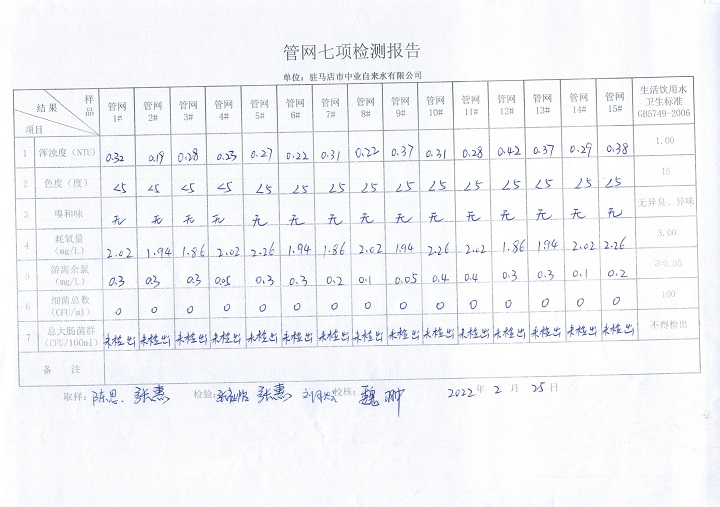 管网七项检测报告
单位：驻马店市中业自来水有限公司
结果 样品 项目 管网1# 管网2# 管网3# 管网4# 管网5# 管网6# 管网7# 管网8# 管网9# 管网10# 管网11# 管网12# 管网13# 管网14# 管网15# 生活饮用水卫生标准GB5749-2006
1 浑浊度（NTU） 0.32 0.19 0.28 0.23 0.27 0.22 0.31 0.22 0.37 0.31 0.28 0.42 0.37 0.29 0.38 1.00
2 色度（度） <5 <5 <5 <5 <5 <5 <5 <5 <5 <5 <5 <5 <5 <5 <5 15
3 嗅和味 无 无 无 无 无 无 无 无 无 无 无 无 无 无 无 无异臭、异味
4 耗氧量（mg/L） 2.02 1.94 1.86 2.02 2.26 1.94 1.86 2.02 1.94 2.26 2.02 1.86 1.94 2.02 2.26 3.00
5 游离余氯（mg/L） 0.3 0.3 0.3 0.05 0.3 0.3 0.2 0.1 0.05 0.4 0.4 0.3 0.3 0.1 0.2 ≥0.05
6 细菌总数（CFU/ml） 0 0 0 0 0 0 0 0 0 0 0 0 0 0 0 100
7 总大肠菌群（CFU/100ml） 未检出 未检出 未检出 未检出 未检出 未检出 未检出 未检出 未检出 未检出 未检出 未检出 未检出 未检出 未检出 不得检出
备 注
取样：陈思、张惠 检验： 张惠 校核：魏翀 2022年 2 月 25 日